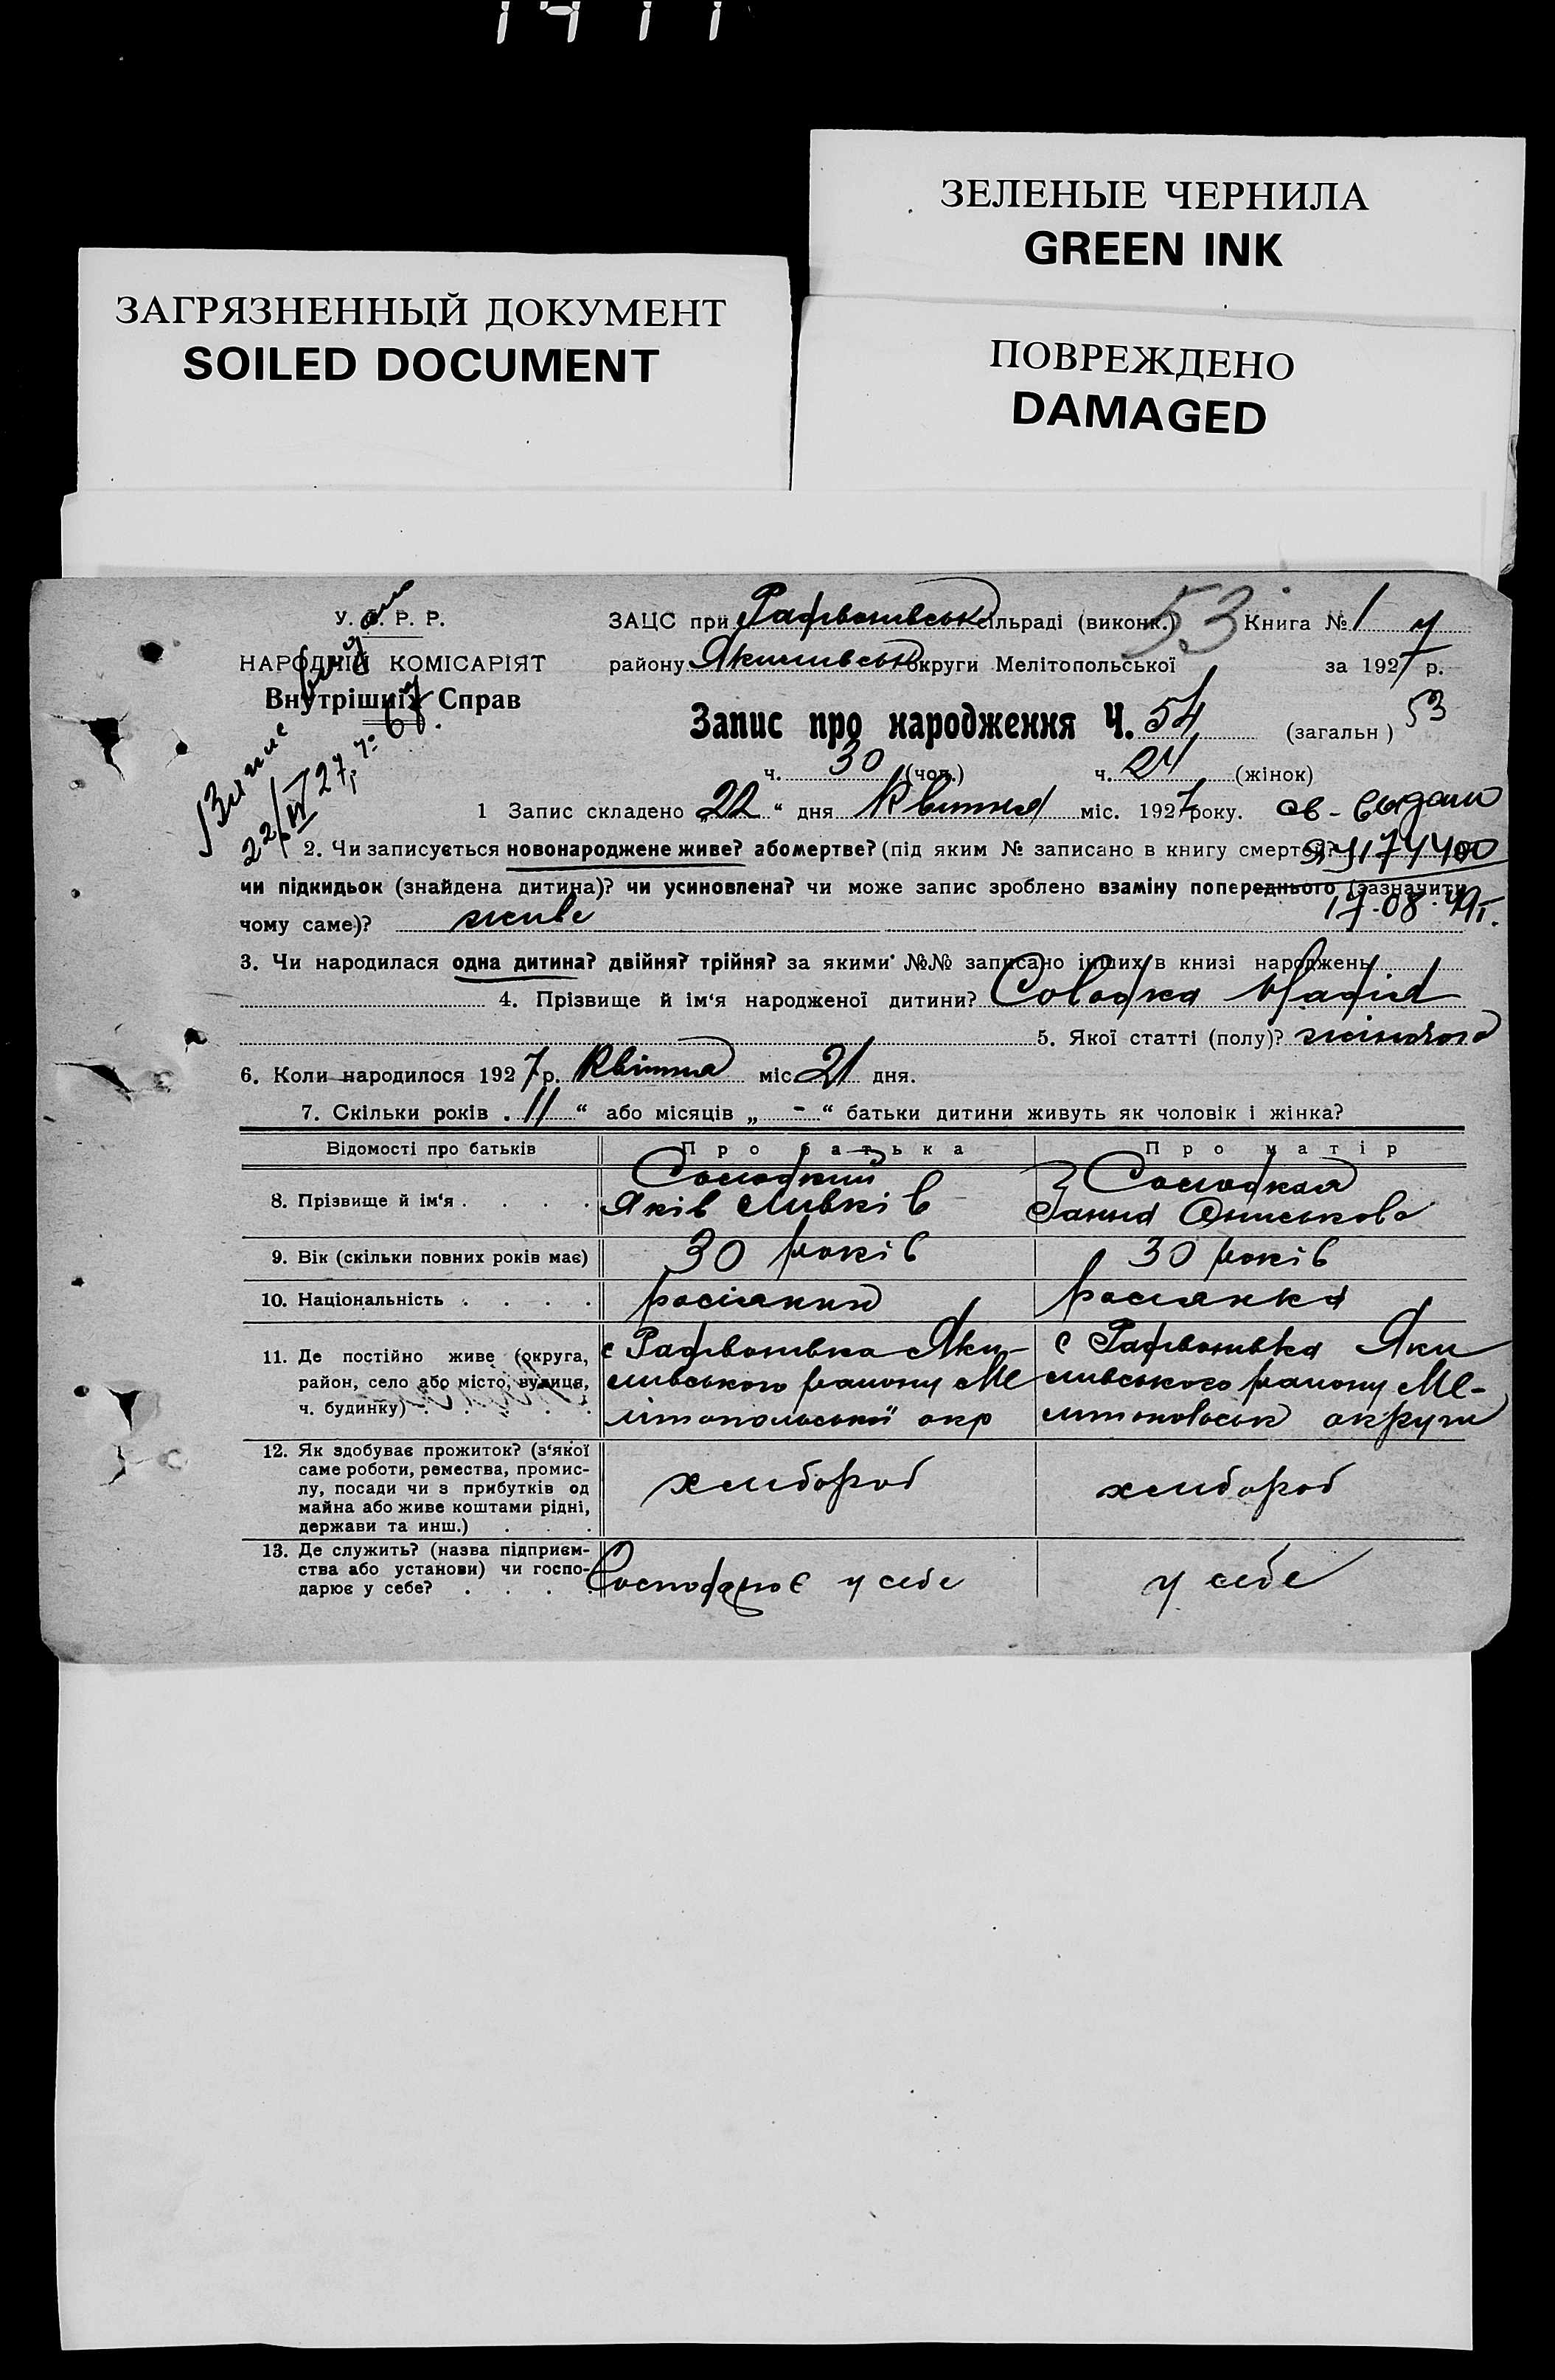 ЗЕЛЕНЫЕ ЧЕРНИЛА
GREEN INK
ЗАГРЯЗНЕННЫЙ ДОКУМЕНТ
SOILED DOCUMENT
ПОВРЕЖДЕНО
DAMAGED
У. С. Р. Р.
НАРОДНІЙ КОМІСАРІЯТ
Внутрішніх Справ
ЗАЦС при сільраді (виконк.) 53 Книга № 1
району округи Мелітопольської за 1927 р.
Запис про народження Ч. 54 (загальн) 53
ч. 30 (чол.) ч. 24 (жінок)
1 Запис складено „22“ дня Квітня міс. 1927 року. св-
2. Чи записується новонароджене живе? або мертве? (під яким № записано в книгу смертей?
чи підкидьок (знайдена дитина)? чи усиновлена? чи може запис зроблено взаміну попереднього (зазначити
17-08-49г.
чому саме)? живе
3. Чи народилася одна дитина? двійня? трійня? за якими №№ записано інших в книзі народжень
4. Прізвище й ім‘я народженої дитини?
5. Якої статті (полу)? жіночого
6. Коли народилося 1927 р. Квітня міс. 21 дня.
7. Скільки років „11“ або місяців „-“ батьки дитини живуть як чоловік і жінка?
Відомості про батьків Про батька Про матір
8. Прізвище й ім‘я . . . . Солодкий Солодкая
Яків Ганна
9. Вік (скільки повних років має) 30 років 30 років
10. Національність . . . . росіянин росіянка
11. Де постійно живе (округа, район, село або місто, вулиця, ч. будинку) . . . . .
с Яки- с Яки
мівського району Ме мівського району Ме-
літопольської окр округи
12. Як здобуває прожиток? (з‘якої саме роботи, ремества, промислу, посади чи з прибутків од майна або живе коштами рідні, держави та инш.) . . . хлібороб хлібороб
13. Де служить? (назва підприємства або установи) чи господарює у себе? . . . . Господарює у себе у себе